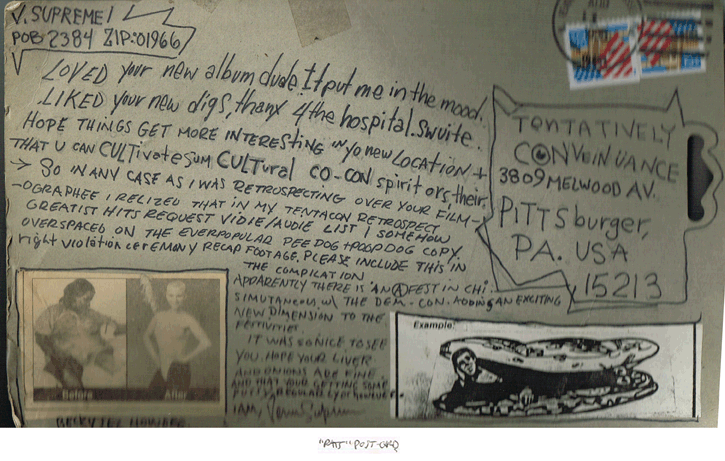 V. SUPREME!
POB 2384 ZIP:01966
LOVED your new album dude It put me in the mood.
LIKED your new digs, thanx 4 the hospital.swuite.
HOPE THINGS GET MORE INTERESTING IN yo new LOCATION +
THAT U CAN CULTivate sum CULTural CO-CON spirit ors, their.
→ SO IN ANY CASE AS I WAS RETROSPECTING OVER YOUR FILM-
-OGRAPHEE I RELIZED THAT IN MY TENTACON RETROSPECT
GREATIST HITS REQUEST VIDIE/AUDIE LIST I SOMEHOW
OVERSPACED ON THE EVERPOPULAR PEE DOG + POOP DOG COPY.
right violation ceremony RECAP FOOTAGE. PLEASE INCLUDE THIS IN
THE COMPILATION
APPARENTLY THERE IS AN Ⓐ FEST IN CHI.
SIMUTANEOUS W/ THE DEM. CON. ADDING AN EXCITING
NEW DIMENSION TO THE
FESTIVITIES.
IT WAS SO NICE TO SEE
YOU. HOPE YOUR LIVER
AND ONIONS ARE FINE
AND THAT YOUR GETTING SOME
I AM,
TENTATIVELY
CONVEINIANCE
3809 MELWOOD AV.
PITTSburger,
PA. USA
15213
Before After
Example:
POST-CARD